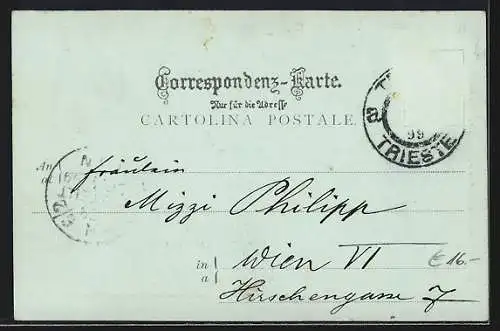 Correspondenz-Karte.
Nur für die Adresse
CARTOLINA POSTALE.
99
TRIESTE
An
a
Fräulein
Mizzi Philipp
in
a
Wien VI
€ 16.-
Hirschengasse 7